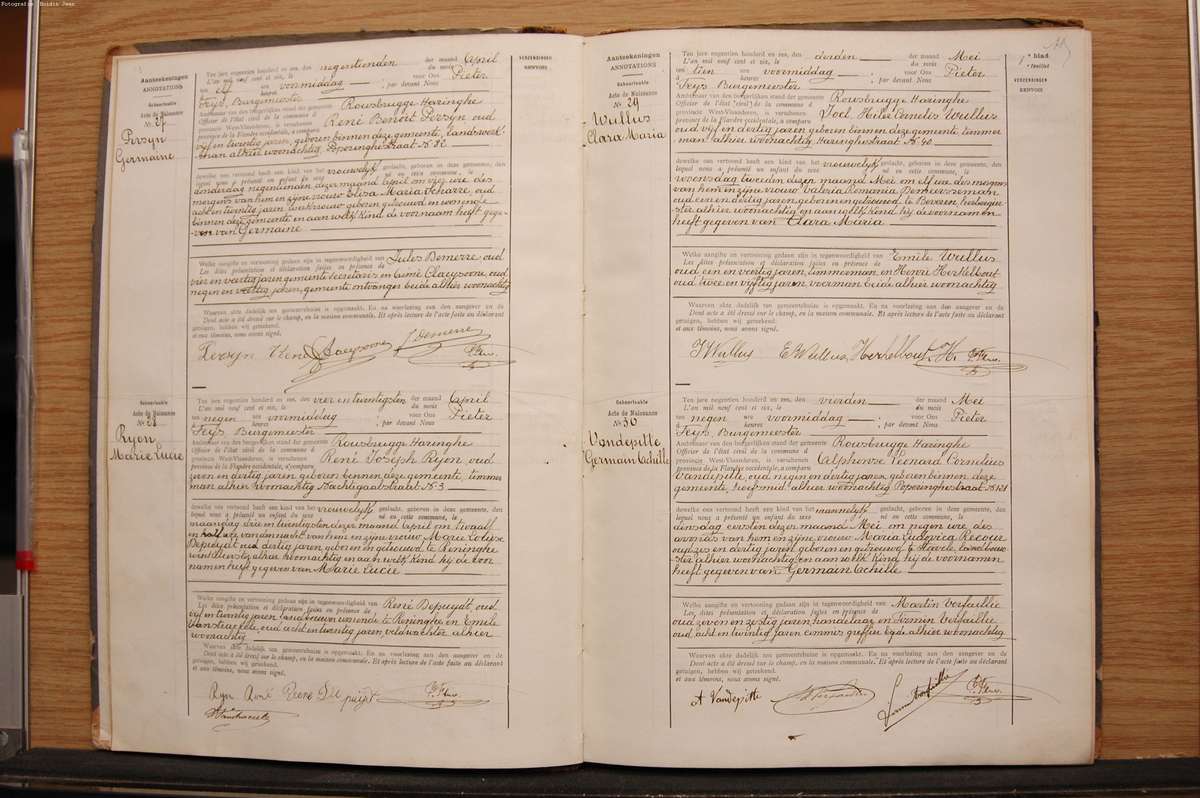 Fotografie: Boidin Jean
Aanteekeningen
ANNOTATIONS
Geboorteakte
Acte de Naissance
No. 27
Persyn
Germaine
Ten jare negentien honderd en zes, den negentienden der maand April
L'an mil neuf cent et six, le du mois
ten elf ure voormiddag ; voor Ons Pieter
à heures ; par devant Nous
Feys, Burgemeester
Ambtenaar van den burgerlijken stand der gemeente Rousbrugge Haringhe
Officier de l'état civil de la commune d
provincie West-Vlaanderen, is verschenen René Benoit Persyn, oud
province de la Flandre occidentale, a comparu
vijf en twintig jaren, geboren binnen deze gemeente, landswerk-
man alhier woonachtig Poperinghestraat N. 82
dewelke ons vertoond heeft een kind van het vrouwelijk geslacht, geboren in deze gemeente, den
lequel nous a présenté un enfant du sexe né en cette commune, le
donderdag negentienden dezer maand April om vier ure des
morgens van hem en zijne vrouw Elisa Maria Scharre, oud
acht en twintig jaren, geboren getrouwd en wonende
binnen deze gemeente en aan welk kind de voornaam heeft gege-
ven van Germaine
Welke aangifte en vertooning gedaan zijn in tegenwoordigheid van Jules Demerre oud
Les dites présentation et déclaration faites en présence de
vier en veertig jaren, gemeente secretaris en Aimé Claeysoone, oud
negen en veertig jaren, gemeente ontvanger beide alhier woonachtig
Waarvan akte dadelijk ten gemeentehuize is opgemaakt. En na voorlezing aan den aangever en de
Dont acte a été dressé sur le champ, en la maison communale. Et après lecture de l'acte faite au déclarant
getuigen, hebben wij geteekend.
et aux témoins, nous avons signé.
Persyn René Claeysoone J Demerre P. Feys
VERZENDINGEN
RENVOIS
Geboorteakte
Acte de Naissance
No. 28
Ryon
Marie Lucie
Ten jare negentien honderd en zes, den vier en twintigsten der maand April
L'an mil neuf cent et six, le du mois
ten negen ure voormiddag ; voor Ons Pieter
à heures ; par devant Nous
Feys Burgemeester
Ambtenaar van den burgerlijken stand der gemeente Rousbrugge Haringhe
Officier de l'état civil de la commune d
provincie West-Vlaanderen, is verschenen René Joseph Ryon, oud
province de la Flandre occidentale, a comparu
zeven en dertig jaren geboren binnen deze gemeente, timmer
man alhier woonachtig Nachtegaalstraat N. 3
dewelke ons vertoond heeft een kind van het vrouwelijk geslacht, geboren in deze gemeente, den
lequel nous a présenté un enfant du sexe né en cette commune, le
maandag drie en twintigsten dezer maand April om twaalf
en half ure van den nacht van hem en zijne vrouw Marie Louise
Depuydt oud dertig jaren, geboren en getrouwd te Reninghe
winkelierster alhier woonachtig en aan welk kind hij de voor
namen heeft gegeven van Marie Lucie
Welke aangifte en vertooning gedaan zijn in tegenwoordigheid van René Depuydt, oud
Les dites présentation et déclaration faites en présence de
vijf en twintig jaren, landbouwer wonende te Reninghe en Emile
Vanstraceele, oud acht en twintig jaren, veldwachter alhier
woonachtig
Waarvan akte dadelijk ten gemeentehuize is opgemaakt. En na voorlezing aan den aangever en de
Dont acte a été dressé sur le champ, en la maison communale. Et après lecture de l'acte faite au déclarant
getuigen, hebben wij geteekend.
et aux témoins, nous avons signé.
Ryon René René De puydt P. Feys
Aanteekeningen
ANNOTATIONS
Geboorteakte
Acte de Naissance
No. 29
Wullus
Clara Maria
Ten jare negentien honderd en zes, den derden der maand Mei
L'an mil neuf cent et six, le du mois
ten tien ure voormiddag ; voor Ons Pieter
à heures ; par devant Nous
Feys Burgemeester
Ambtenaar van den burgerlijken stand der gemeente Rousbrugge Haringhe
Officier de l'état civil de la commune d
provincie West-Vlaanderen, is verschenen Cornelis Wullus
province de la Flandre occidentale, a comparu
oud vijf en dertig jaren, geboren binnen deze gemeente, timmer
man alhier woonachtig Haringhestraat N. 40
dewelke ons vertoond heeft een kind van het vrouwelijk geslacht, geboren in deze gemeente, den
lequel nous a présenté un enfant du sexe né en cette commune, le
woensdag tweeden dezer maand Mei om elf ure des morgens
van hem en zijne vrouw Valeria Romania Demeersseman
oud een en dertig jaren, geboren en getrouwd te Beveren, herbergier
ster alhier woonachtig en aan welk kind hij de voornamen
heeft gegeven van Clara Maria
Welke aangifte en vertooning gedaan zijn in tegenwoordigheid van Emile Wullus
Les dites présentation et déclaration faites en présence de
oud een en veertig jaren, timmerman en Henri Herkelbout
oud twee en vijftig jaren voerman beide alhier woonachtig
Waarvan akte dadelijk ten gemeentehuize is opgemaakt. En na voorlezing aan den aangever en de
Dont acte a été dressé sur le champ, en la maison communale. Et après lecture de l'acte faite au déclarant
getuigen, hebben wij geteekend.
et aux témoins, nous avons signé.
J Wullus E Wullus, Herkelbout H. P. Feys
7e blad
e feuillet
VERZENDINGEN
RENVOIS
Geboorteakte
Acte de Naissance
No. 30
Vandepitte
Germain Achille
Ten jare negentien honderd en zes, den vierden der maand Mei
L'an mil neuf cent et six, le du mois
ten negen ure voormiddag ; voor Ons Pieter
à heures ; par devant Nous
Feys Burgemeester
Ambtenaar van den burgerlijken stand der gemeente Rousbrugge Haringhe
Officier de l'état civil de la commune d
provincie West-Vlaanderen, is verschenen Alphonse Leonard Cornelius
province de la Flandre occidentale, a comparu
Vandepitte, oud negen en dertig jaren, geboren binnen deze
gemeente, hoefsmid alhier woonachtig Poperinghestraat N. 131
dewelke ons vertoond heeft een kind van het mannelijk geslacht, geboren in deze gemeente, den
lequel nous a présenté un enfant du sexe né en cette commune, le
dinsdag eersten dezer maand Mei om negen ure des
avonds van hem en zijne vrouw Maria Ludovica Recour
oud zes en dertig jaren geboren en getrouwd te Stavele, landbouw
ster alhier woonachtig en aan welk kind hij de voornamen
heeft gegeven van Germain Achille
Welke aangifte en vertooning gedaan zijn in tegenwoordigheid van Martin Verfaillie
Les dites présentation et déclaration faites en présence de
oud zeven en zestig jaren, handelaar en Firmin Verfaillie
oud acht en twintig jaren commis greffier beide alhier woonachtig
Waarvan akte dadelijk ten gemeentehuize is opgemaakt. En na voorlezing aan den aangever en de
Dont acte a été dressé sur le champ, en la maison communale. Et après lecture de l'acte faite au déclarant
getuigen, hebben wij geteekend.
et aux témoins, nous avons signé.
A Vandepitte M Verfaillie Firmin Verfaillie P. Feys